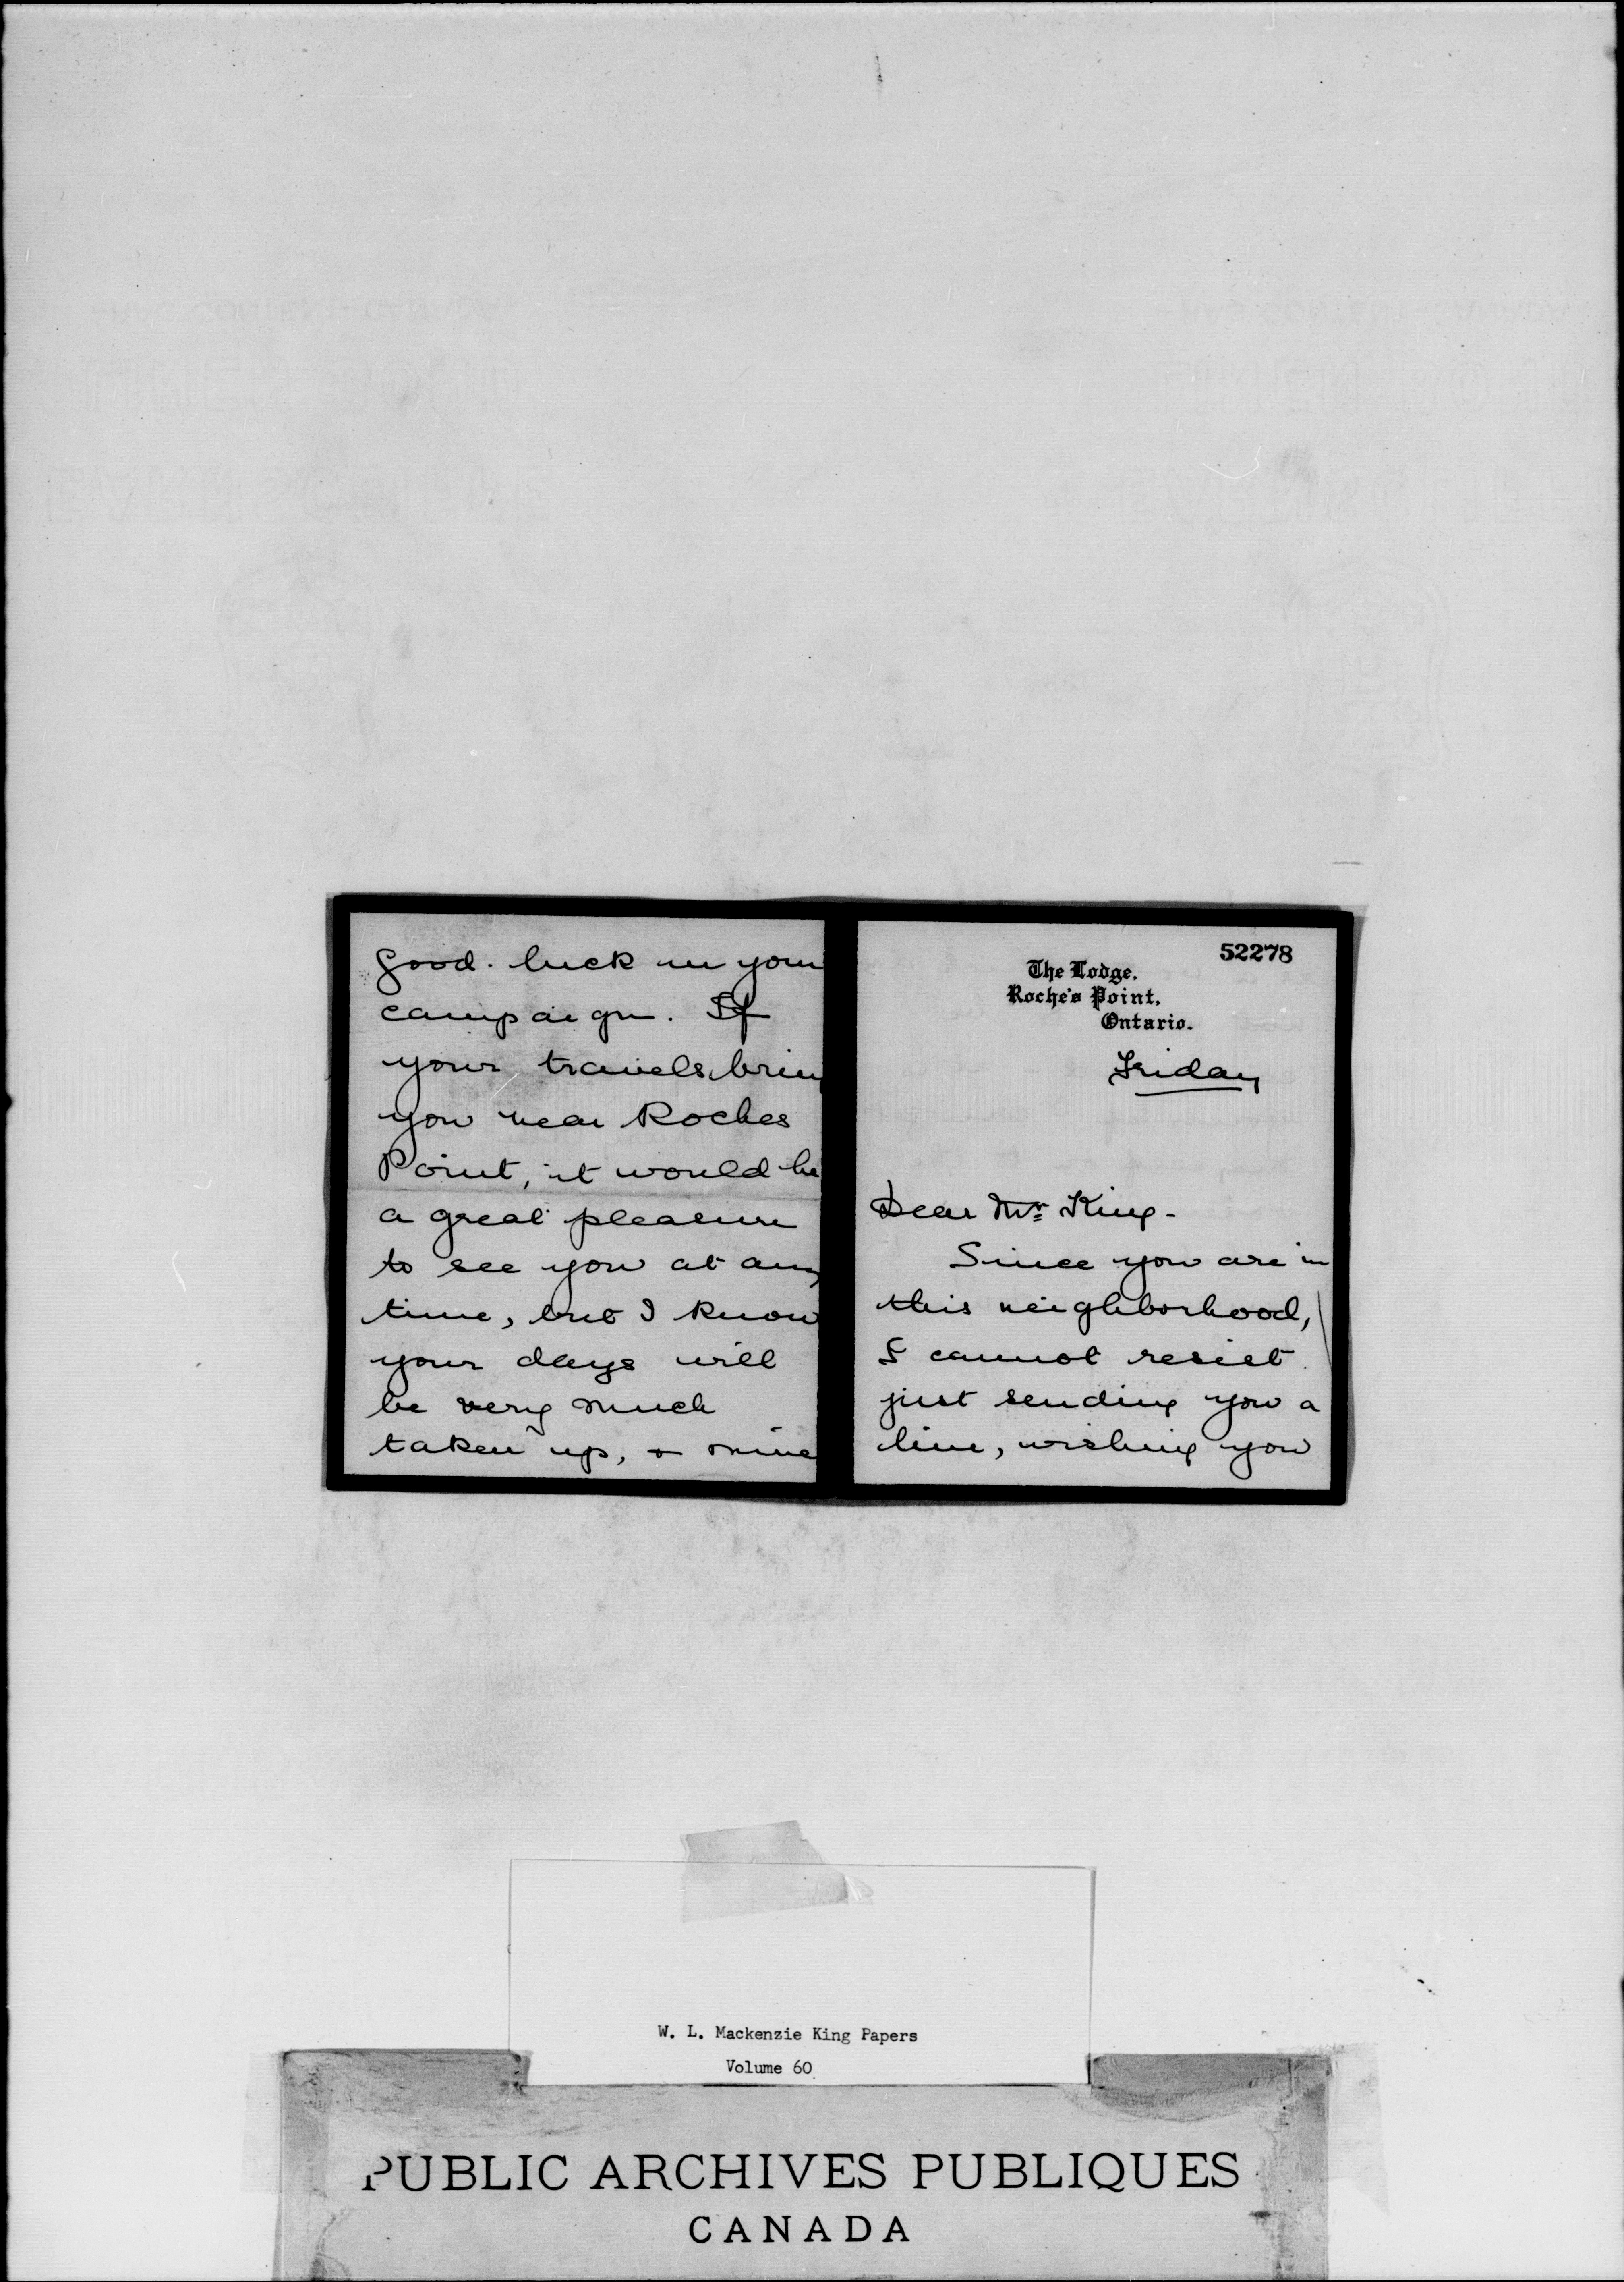 52278
The Lodge.
Roche's Point,
Ontario.
Friday
Dear Mr. King-
Since you are in
this neighborhood,
I cannot resist
just sending you a
line, wishing you
good luck in your
campaign. If
your travels bring
you near Roches
Point, it would be
a great pleasure
to see you at any
time, but I know
your days will
be very much
taken up, & mine
W. L. Mackenzie King Papers
Volume 60
PUBLIC ARCHIVES PUBLIQUES
CANADA